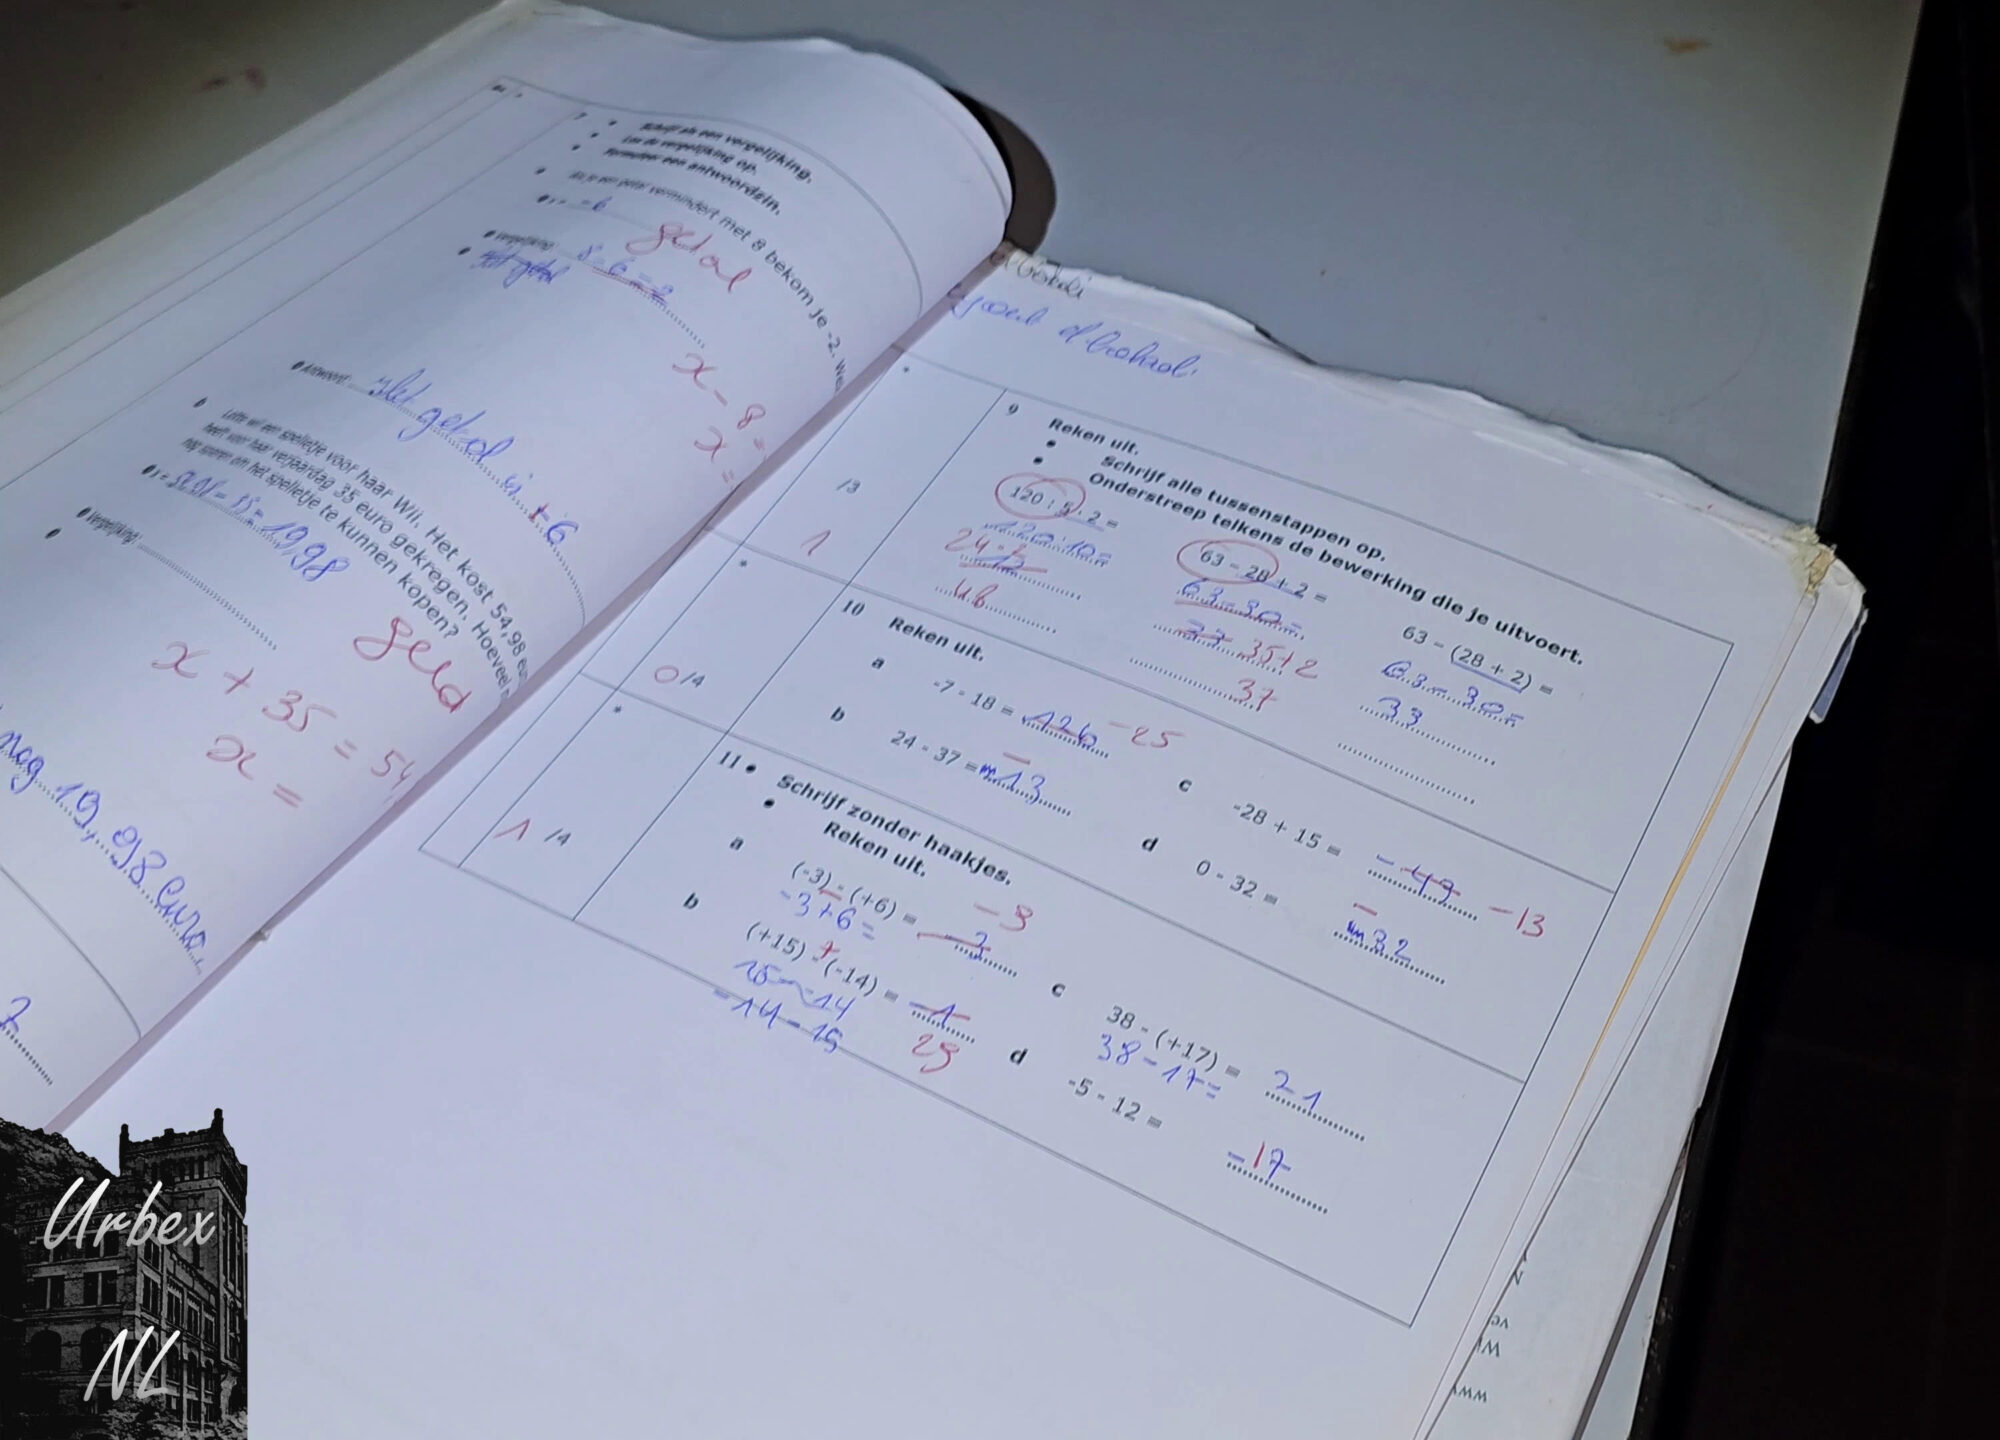 7
Schrijf als een vergelijking.
Los de vergelijking op.
Formuleer een antwoordzin.
a Als je een getal vermindert met 8 bekom je -2. We
getal
Vergelijking: 8 - 6 = 2
Het getal
x - 8 =
x =
Antwoord: Het getal is +6
b Lotte wil een spelletje voor haar Wii. Het kost 54,98 eu
heeft voor haar verjaardag 35 euro gekregen. Hoeveel
nog sparen om het spelletje te kunnen kopen?
geld
Vergelijking:
x + 35 = 54
x =
nog 19,98 Euro
9 Reken uit.
Schrijf alle tussenstappen op.
Onderstreep telkens de bewerking die je uitvoert.
/3
1
120 : 5 . 2 =
120:10=
24 . 2
12
48
63 - 28 + 2 =
63-30=
33 35+2
37
63 - (28 + 2) =
63-30=
33
10 Reken uit.
0/4
a -7 - 18 = 126 -25
b 24 - 37 = -13
c -28 + 15 = -43 -13
d 0 - 32 = -32
11 Schrijf zonder haakjes.
Reken uit.
1 /4
a (-3) - (+6) = 3 -9
-3+6=
b (+15) - (-14) = -1
15 - -14
=14-15
29
c 38 - (+17) = 21
38-17=
d -5 - 12 = -17
Urbex
NL